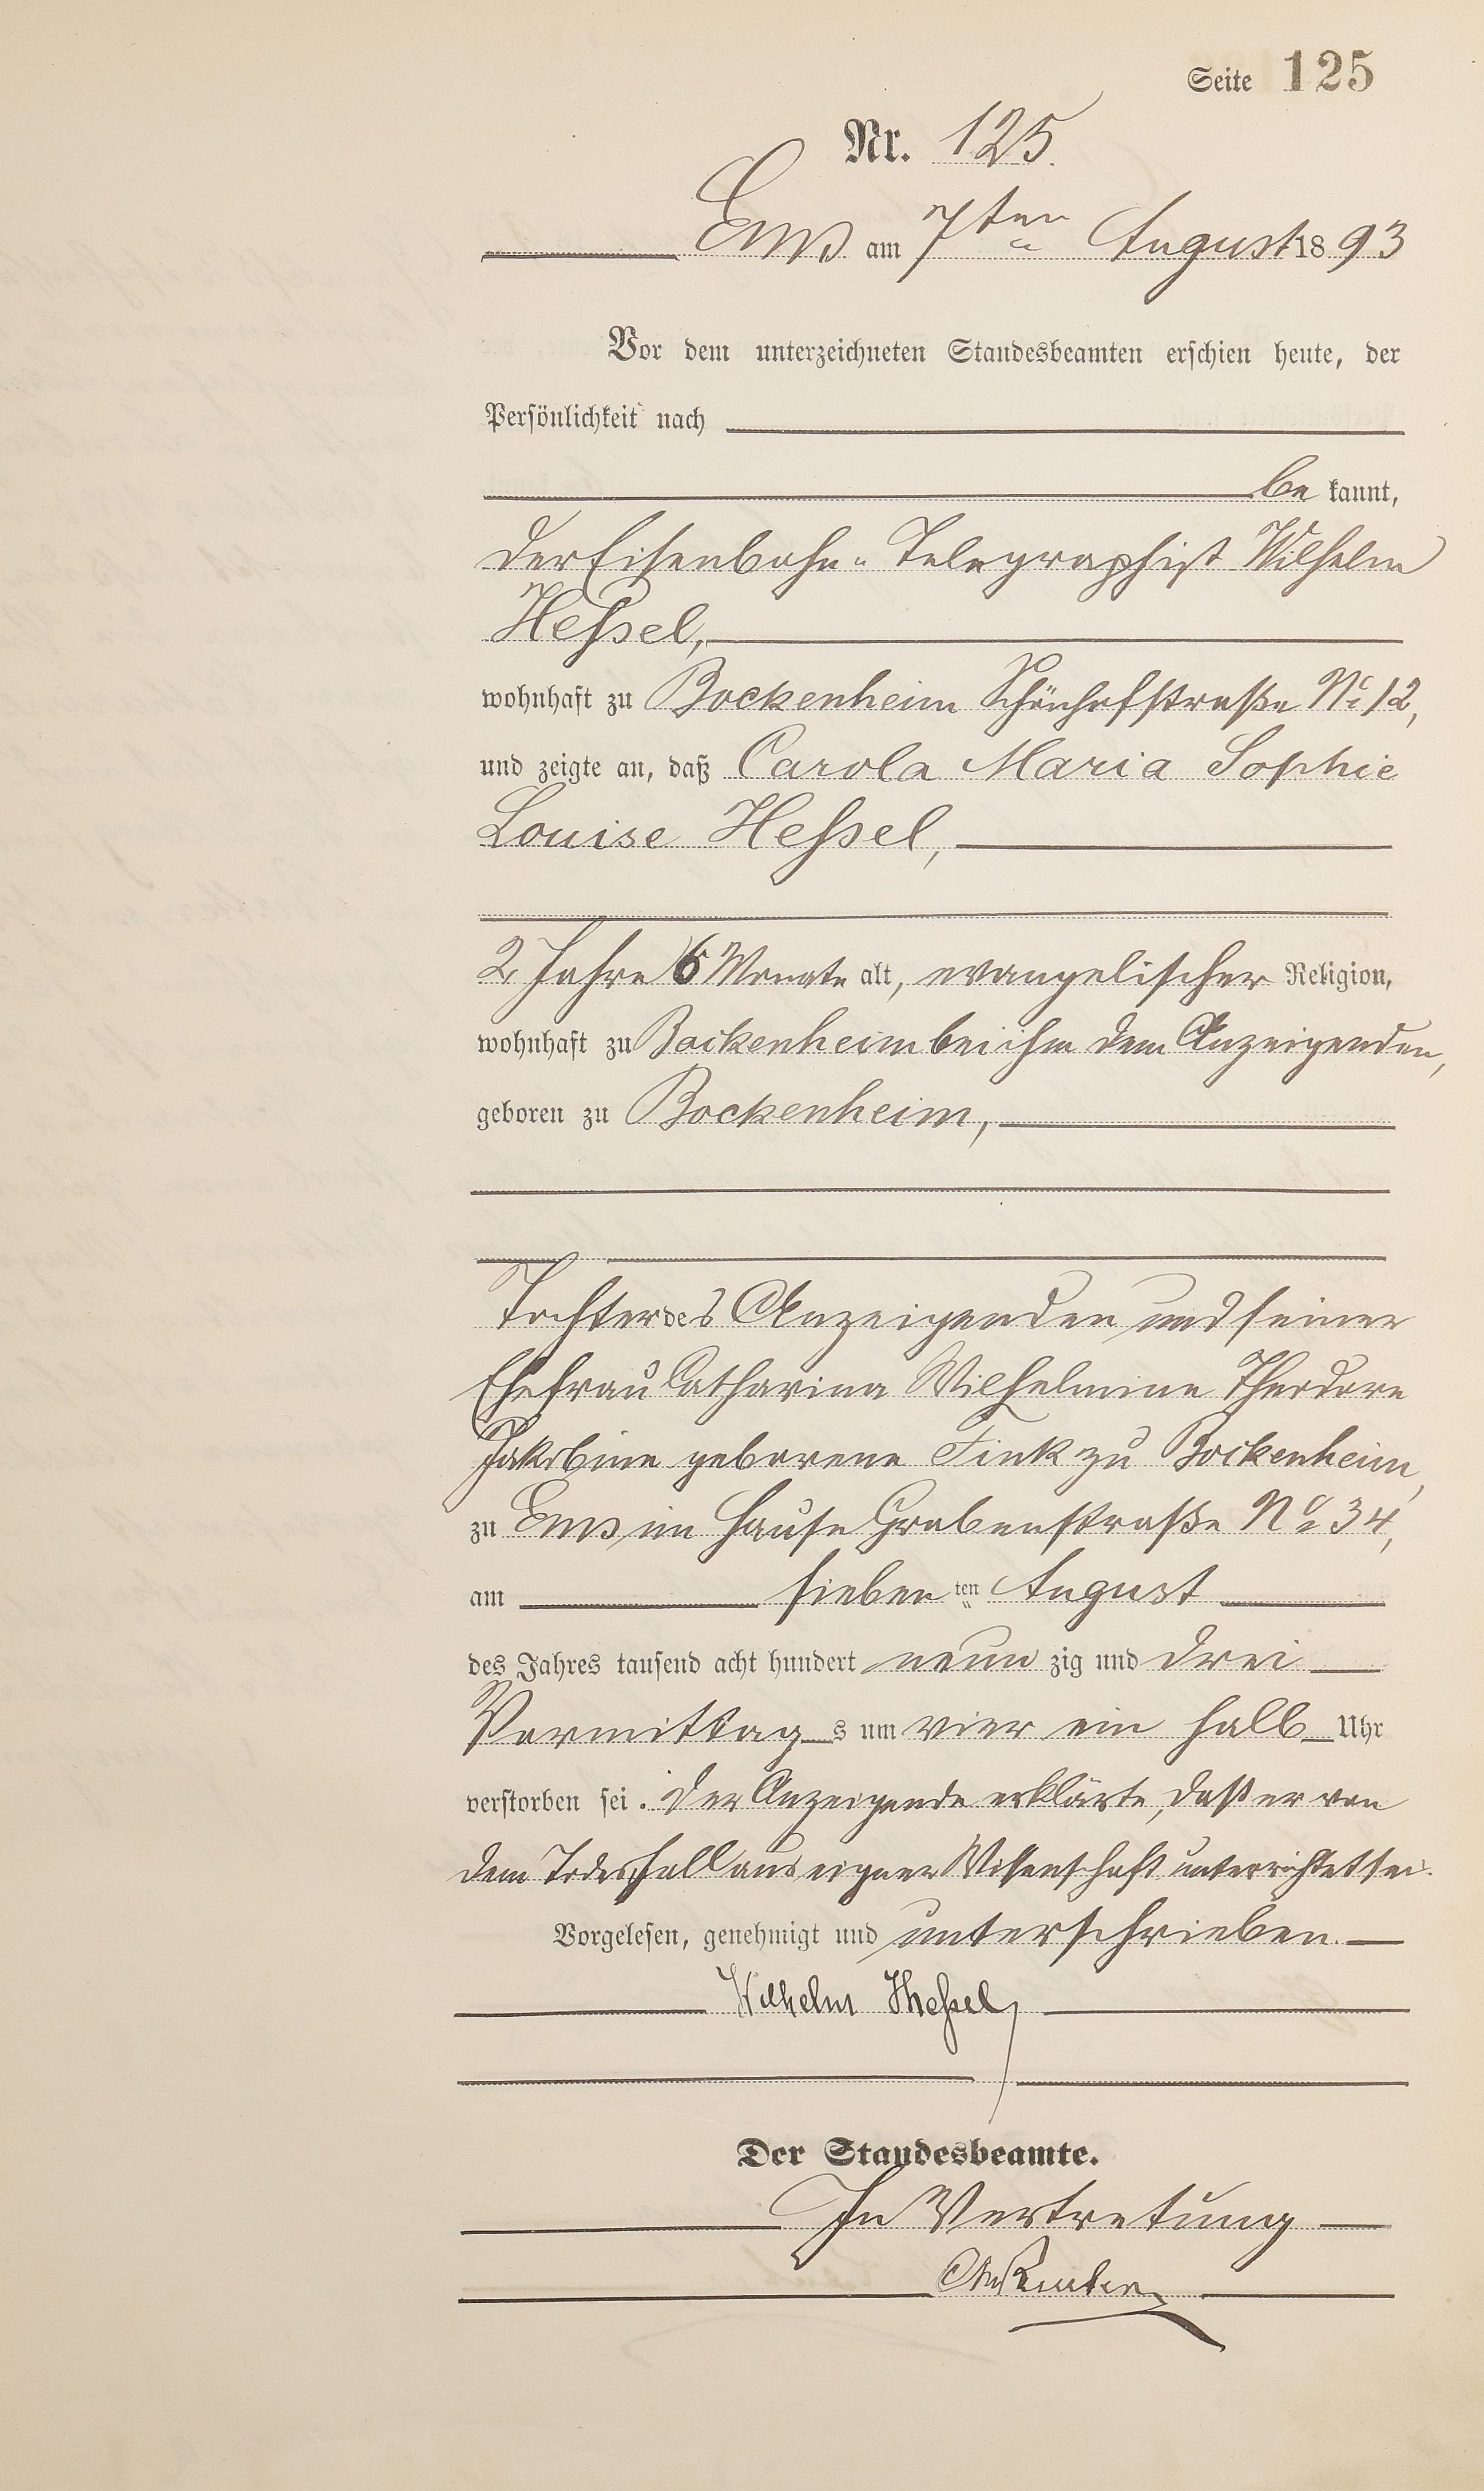 Seite 125
Nr. 125.
Ems am 7ten August 1893
Vor dem unterzeichneten Standesbeamten erschien heute, der
Persönlichkeit nach
be kannt,
der Eisenbahn-Telegraphist Wilhelm
Heßel,
wohnhaft zu Bockenheim Schönhofstraße No 12,
und zeigte an, daß Carola Maria Sophie
Louise Heßel,
2 Jahre 6 Monate alt, evangelischer Religion,
wohnhaft zu Bockenheim bei ihm dem Anzeigenden,
geboren zu Bockenheim,
Tochter des Anzeigenden und seiner
Ehefrau Catharina Wilhelmine Theodore
Jakobine geborene Fink zu Bockenheim,
zu Ems im Hause Grabenstraße No 34,
am sieben ten August
des Jahres tausend acht hundert neun zig und drei
Vormittag s um vier ein halb Uhr
verstorben sei. Der Anzeigende erklärte, daß er von
dem Todesfall aus eigner Wissenschaft unterrichtet sei.
Vorgelesen, genehmigt und unterschrieben.
Wilhelm Heßel
Der Standesbeamte.
In Vertretung